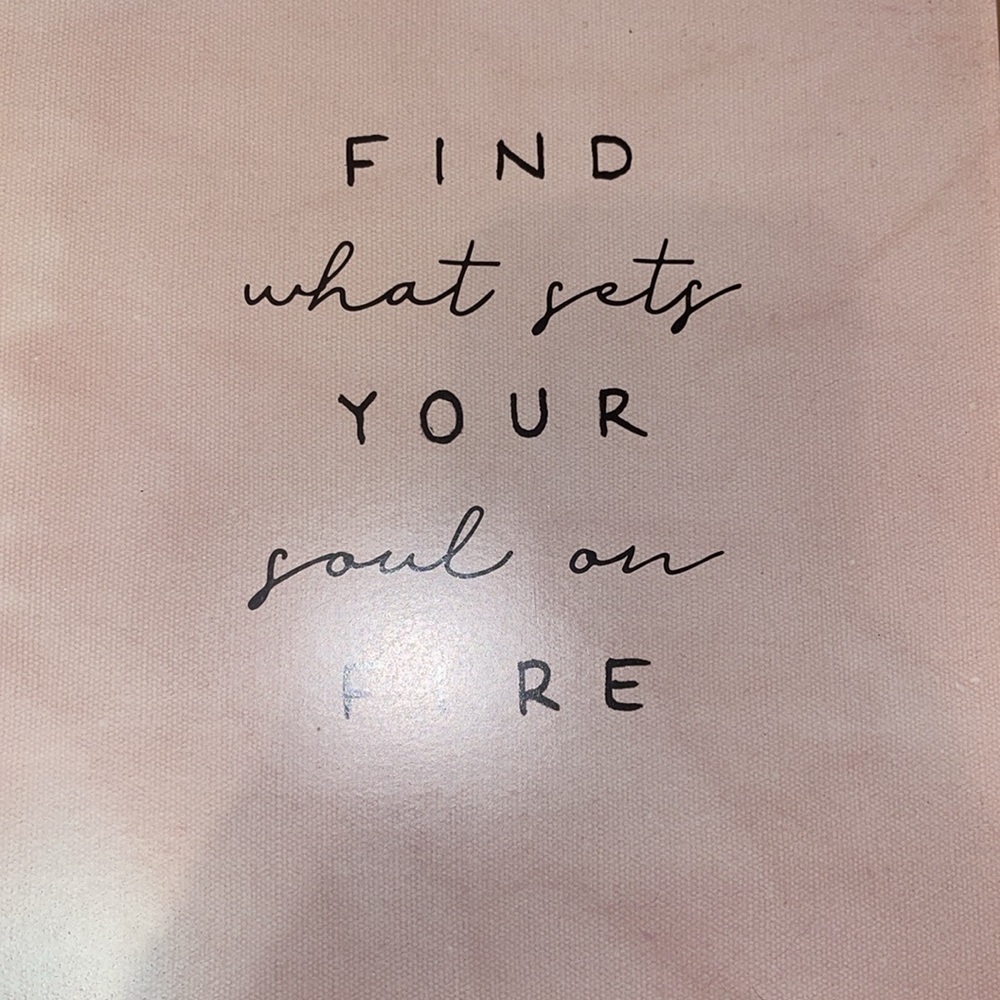 FIND
what sets
YOUR
soul on
FIRE